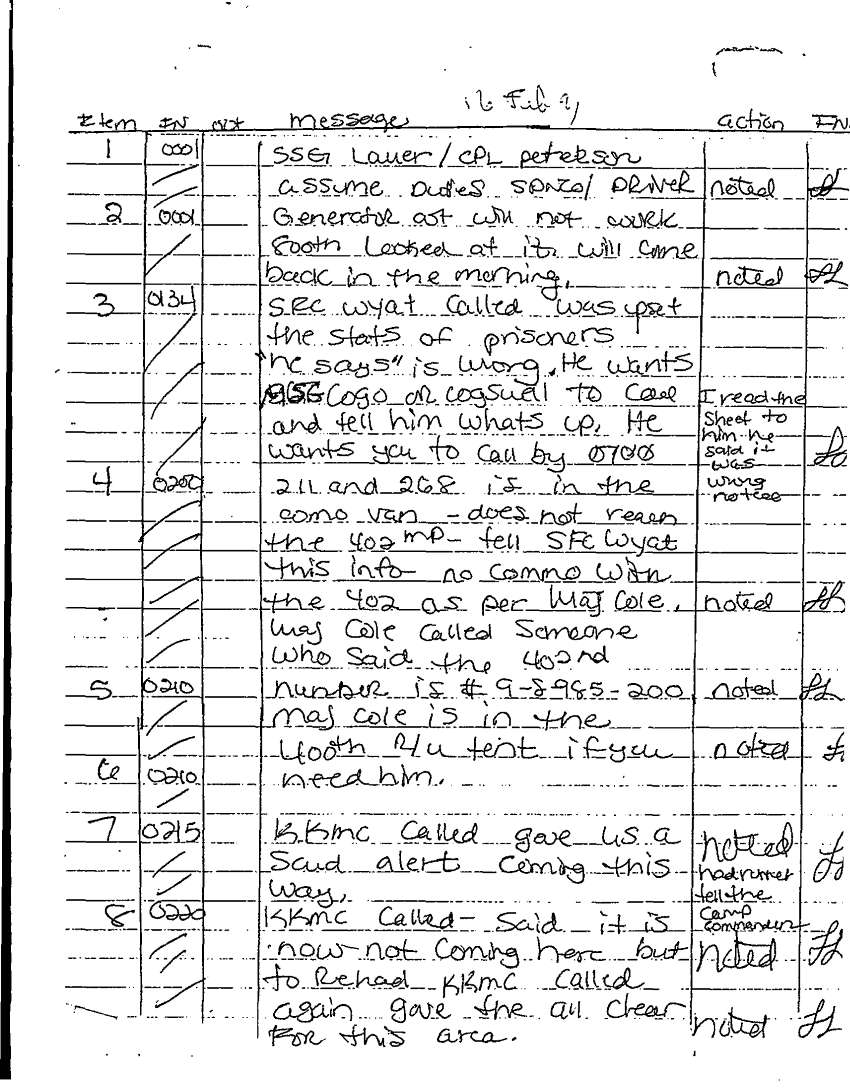 16 Feb 91
Item IN out message action IN
1 0001 SSG Lauer / CPL peterson
assume Duties SDNCO/ DRIVER noted
2 0001 Generator ast will not work
Booth Looked at it. will come
back in the morning. noted
3 0134 SFC wyat Called was upset
the stats of prisoners
"he says" is wrong. He wants
SSG Cogo or cogswell to Call I read the
and tell him whats up. He Sheet to
him he
wants you to Call by 0700 said it
was
4 0200 211 and 268 is in the wrong
noted
como van - does not reach
the 402 mp - tell SFC wyat
this info no commo with
the 402 as per Maj Cole. noted
Maj Cole Called Someone
who said the 402nd
5 0210 number is # 9-8985-200 noted
maj cole is in the
400th R/u tent if you noted
6 0210 need him.
7 0215 KKmc Called gave us a noted
Scud alert coming this had runner
way. tell the
8 0220 KKmc Called - Said it is Camp
commander
now not Coming here but noted
to Rehad KKmc Called
again gave the all Clear noted
For this area.